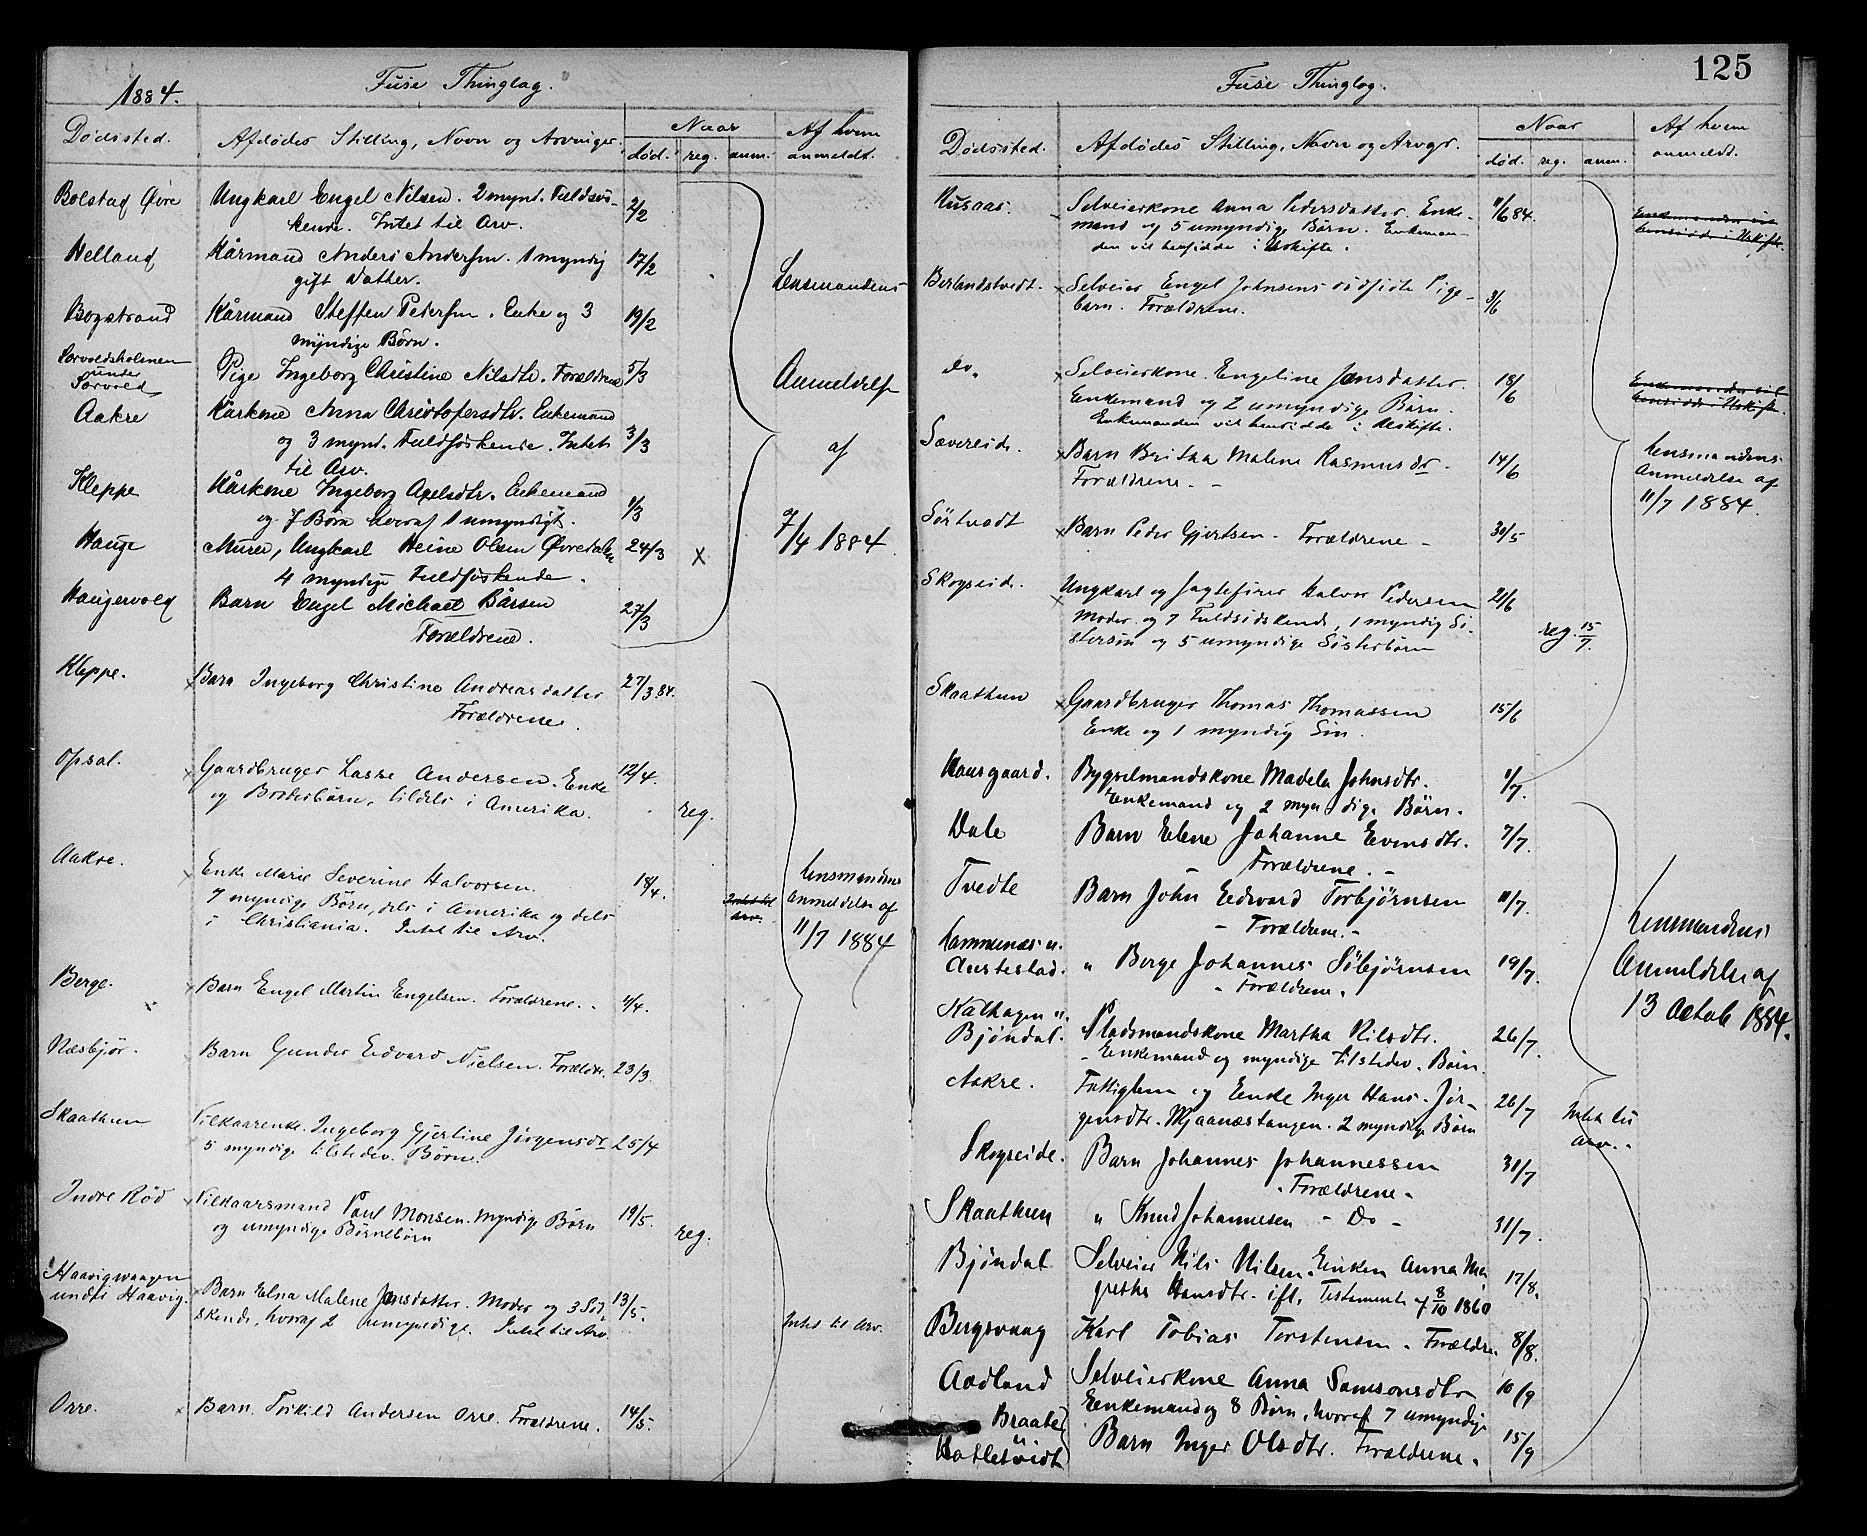 1884.
Fuse Thinglag.
Dødssted.
Afdødes Stilling, Navn og Arvinger.
Naar
død. reg. anm.
Af hvem
anmeldt.
Bolstad Øvre
Ungkarl Engel Nilsen. 2 mynd. Fuldsøs-
kende. Intet til Arv.
2/2
Helland
Kårmand Anders Andersen. 1 myndig
gift Datter.
17/2
Bogstrand
Kårmand Steffen Petersen. Enke og 3
myndige Børn.
19/2
Sørvoldsholmen
under
Sørvold
Pige Ingeborg Christine Nilsdtr. Forældrene
5/3
Aakre
Kårkone Anna Christofersdtr. Enkemand
og 3 mynd. Fuldsøskende. Intet
til Arv.
3/3
Kleppe
Kårkone Ingeborg Axelsdtr. Enkemand
og 7 Børn hvoraf 1 umyndigt.
1/3
Hauge
Murer, Ungkarl Heine Olsen Øvredalen
4 myndige Fuldsøskende.
24/3 X
Haugervold
Barn Engel Michael Bårsen
Forældrene.
27/3
Lensmandens
Anmeldelse
af
7/4 1884
Kleppe.
x Barn Ingeborg Christine Andreasdatter
Forældrene.
27/3 84.
Opsal.
x Gaardbruger Lasse Andersen. Enke
og Broderbørn, tildels i Amerika.
12/4.
reg.
Aakre.
x Enke Marie Severine Halvorsen.
7 myndige Børn, dels i Amerika og dels
i Christiania. Intet til Arv.
18/4.
Intet til
Arv.
Berge.
x Barn Engel Martin Engelsen. Forældrene.
4/4.
Næsbjør.
Barn Gunder Edvard Nielsen. Forældre.
23/3.
Skaathun
Vilkaarenke. Ingeborg Gjertine Jørgensdtr
5 myndige tilstedev. Børn.
25/4
Indre Rød
x Vilkaarsmand Paul Monsen. Myndige Børn
og umyndige Børnebørn
19/5.
reg.
Haavigvaagen
under Haavig.
x Barn Elna Malene Jansdatter. Moder og 3 Sød
skende, hvoraf 2 umyndige. Intet til Arv
13/5.
Intet til Arv.
Orre.
x Barn. Torkild Andersen Orre. Forældrene.
14/5.
Lensmandens
anmeldelse af
11/7 1884
125
Fuse Thinglag.
Dødssted.
Afdødes Stilling, Navn og Arvgr.
Naar
død. reg. anm.
Af hvem
anmeldt.
Husaas.
Selveierkone Anna Pedersdatter. Enke-
mand og 5 umyndige Børn. Enkeman-
den vil hensidde i Uskifte.
11/6 84.
Enkemanden vil
hensidde i Uskifte.
Berlandstvedt.
x Selveier Engel Johnsens dødfødte Pige-
barn. Forældrene.
3/6
do.
x Selveierkone. Engeline Jansdatter.
Enkemand og 2 umyndige Børn.
Enkemanden vil hensidde i Uskifte.
18/6
Enkemanden vil
hensidde i Uskifte.
Sævereid.
x Barn Britha Malene Rasmusdr.
Forældrene. -
14/6
Lensmandens
Anmeldelse af
11/7 1884.
Sørtvedt
x Barn Peder Gjertsen. Forældrene -
30/5
Skogseid.
x Ungkarl og Jagtefører Halvor Pedersen
Moder og 7 Fuldsødskende, 1 myndig Sø-
stersøn og 5 umyndige Søsterbørn
21/6
reg. 15/7.
Skaathun
x Gaardbruger Thomas Thomassen
Enke og 1 myndig Søn.
15/6
Hausgaard.
Bygselmandskone Madela Johnsdtr.
Enkemand og 2 myndige Børn.
1/7.
Dale
Barn Elene Johanne Evensdtr.
- Forældrene. -
7/7.
Tvedte
Barn John Edvard Torbjørnsen
- Forældrene. -
11/7.
Austestad.
" Berge Johannes Sæbjørnsen
" Forældrene.
19/7.
Kalhagen u.
Bjøndal.
Pladsmandskone Martha Nilsdtr.
- Enkemand og myndige tilstedev. Børn.
26/7.
Aakre.
Fattiglem og Enke Inger Hans Jør-
gensdtr. Mjaanæstangen. 2 myndige Børn
26/7
Intet til
Arv.
Skogseide.
Barn Johannes Johannessen
- Forældrene -
31/7
Skaathun
" Knud Johannesen - Do -
31/7.
Bjøndal
Selveier Nils Nilsen. Enken Anna Mar
grethe Hansdtr. ifl. Testamente af 8/10 1860
17/8.
Bergsvaag
Karl Tobias Torstensen. Forældre.
8/8.
Aadland
Selveierkone Anna Samsonsdtr
Enkemand og 8 Børn, hvoraf 7 umyndige
10/9
Braate
u
Hatletvedt
Barn Inger Olsdtr. Forældrene.
15/9
Lensmandens
Anmeldelse af
13 Octob 1884.